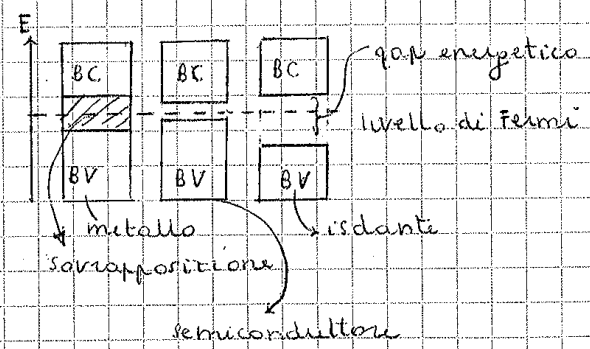 E
BC BC BC gap energetico
livello di Fermi
BV BV BV
metallo isolante
sovrapposizione
semiconduttore